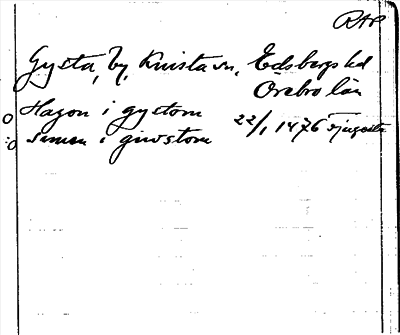 RAP
Gysta, by, Knista sn, Edsbergs hd
Örebro län
Hagon i gystom 22/1 1476
Simon i giwstom